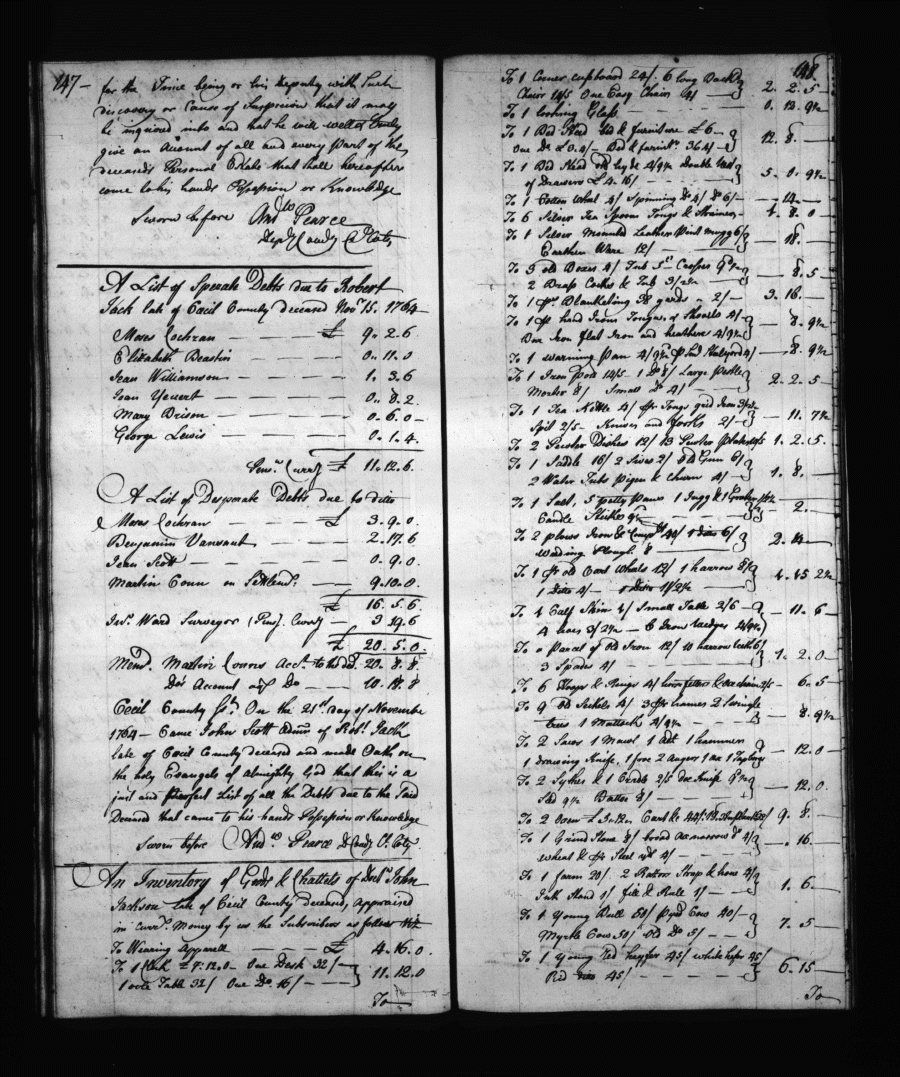 147-
for the Time being or his Deputy with Such
discovery or Cause of Suspicion that it may
be inquired into and that he will well & truly
give an Account of all and every part of the
deceaseds Personal Estate that Shall hereafter
come to his hands Possession or Knowledge
Sworn before And.w Pearce
Depy Comdy C Coty
A List of Sperate Debts due to Robert
Jack late of Cecil County deceased Nov.r 15. 1764
Moses Cochran £ 9. 2. 6
Elizabeth Beastin 0. 11. 0
Jean Williamson 1. 3. 6
0. 8. 2
Mary Brison 0. 6. 0
George Lewis 0. 1. 4
Currcy £ 11. 12. 6
A List of Desperate Debts due to ditto
Moses Cochran £ 3. 9. 0
Benjamin Vansant 2. 17. 6
Jean Scott 0. 9. 0
Martin Conn on Settlemt. 9. 10. 0
£ 16. 5. 6
Ward Surveyor Currcy 3 19. 6
£ 20. 5. 0
Memd. Martin Conns Acct. to the 20. 8. 8
Do's Account agt Do 10. 18. 8
Cecil County Ss. On the 21st day of November
1764 Came John Scott Admr of Robt. Jack
late of Cecil County deceased and made Oath on
the holy Evangels of Almighty God that this is a
just and perfect List of all the Debts due to the Said
Deceased that came to his hands Possession or Knowledge
Sworn before And.w Pearce D Comdy C. Coty.
An Inventory of Goods & Chattels of Decd. John
Jackson late of Cecil County deceased, Appraised
in Currt. Money by us the Subscribers as follows Viz
To Wearing Apparell £ 4. 16. 0
To 1 £ 7. 12. 0 One Desk 32/
1 Table 32/ One Do 16/ } 11. 12. 0
To
148
To 1 Corner cupboard 24/. 6 long Back
Chairs 14/5 One Easy Chair 4/ } 2. 2. 5
To 1 Looking Glass 0. 13. 9½
To 1 Bed Stead Bed & furniture £ 6
One Do Bed & furnitr. } 12. 8.
To 1 Bed Stead
of Drawers £ 4. 16/ } 5. 0. 9½
To 1 Cotton Wheel 4/ Spinning Do 4/ Do 6/ 14
To 6 Silver Tea Spoons Tongs & Strainer 1. 8. 0
To 1 Silver Mounted Leather Pint mugg 6/
Earthen Ware 12/ } 18.
To 3 old Boxes 4/
2 Brass Cocks & } 8. 5
To 1 ps Blanketing 38 yards 2/ 3. 16.
To 1 pr hand Irons Tongs & Shovels 4/
Box Iron flat Iron and heaters 4/9½ } 8. 9½
To 1 warming Pan 4/9½ Stilyard 4/ 8. 9½
To 1 Iron Pott 14/5 1 Do 8/ Large Pestle
Morter 8/ Small Do 4/ } 2. 2. 5
To 1 Tea Kittle 4/ pr Tongs grid Iron
Spit 2/5 Knives and Forks 2/ } 11. 7½
To 2 Pewter Dishes 12/ 13 Pewter plates 1. 2. 5
To 1 Saddle 16/ 2 Sives 2/ Old Gun 6/
2 Water Tubs Pigin & Churn 4/ } 1. 8.
To 1 5 patty Pans 1 Jugg & 1
Candle Sticks } 2.
To 2 plows Irons & 40/ 6/
Plough 8 } 2. 14
To 1 pr old Cart Wheels 12/ 1 harrow 8/
1 Ditto 4/ 1 Ditto } 4. 15 2½
To 4 Calf Skins 4/ Small Table 2/6
4 hoes 3/2½ 6 Iron Wedges } 11. 6
To a parcel of Old Iron 12/ 10 harrow teeth 6/
3 Spades 4/ } 1. 2. 0
To 6 & Rings 4/ 6. 5
To 9 Old Sickels 4/ 3 pr hames 2 Swingle
trees 1 Mattock } 8. 9½
To 2 Saws 1 Mawl 1 Adz 1 hammer
1 Drawing Knife, 1 froe 2 Augers 1 ax } 12. 0
To 2 Sythes & 1 Cradle 2/5 Knife
8/ } 12. 0
To 2 Oxen £ 3. 12. 9. 8.
To 1 Grind Stone 8/ broad Ax narrow Do 4/
wheel & pr 4/ } 16.
To 1 20/ 2 Razors Strap & hone 4/
Ink Stand 1/ file & Rule 1/ } 1. 6.
To 1 Young Bull 50/ Pyed Cow 40/
Myrtle Cow 50/ Old Do 5/ } 7. 5
To 1 Young Red heyfer 45/ white hefer 45/
Red ditto 45/ } 6. 15
To